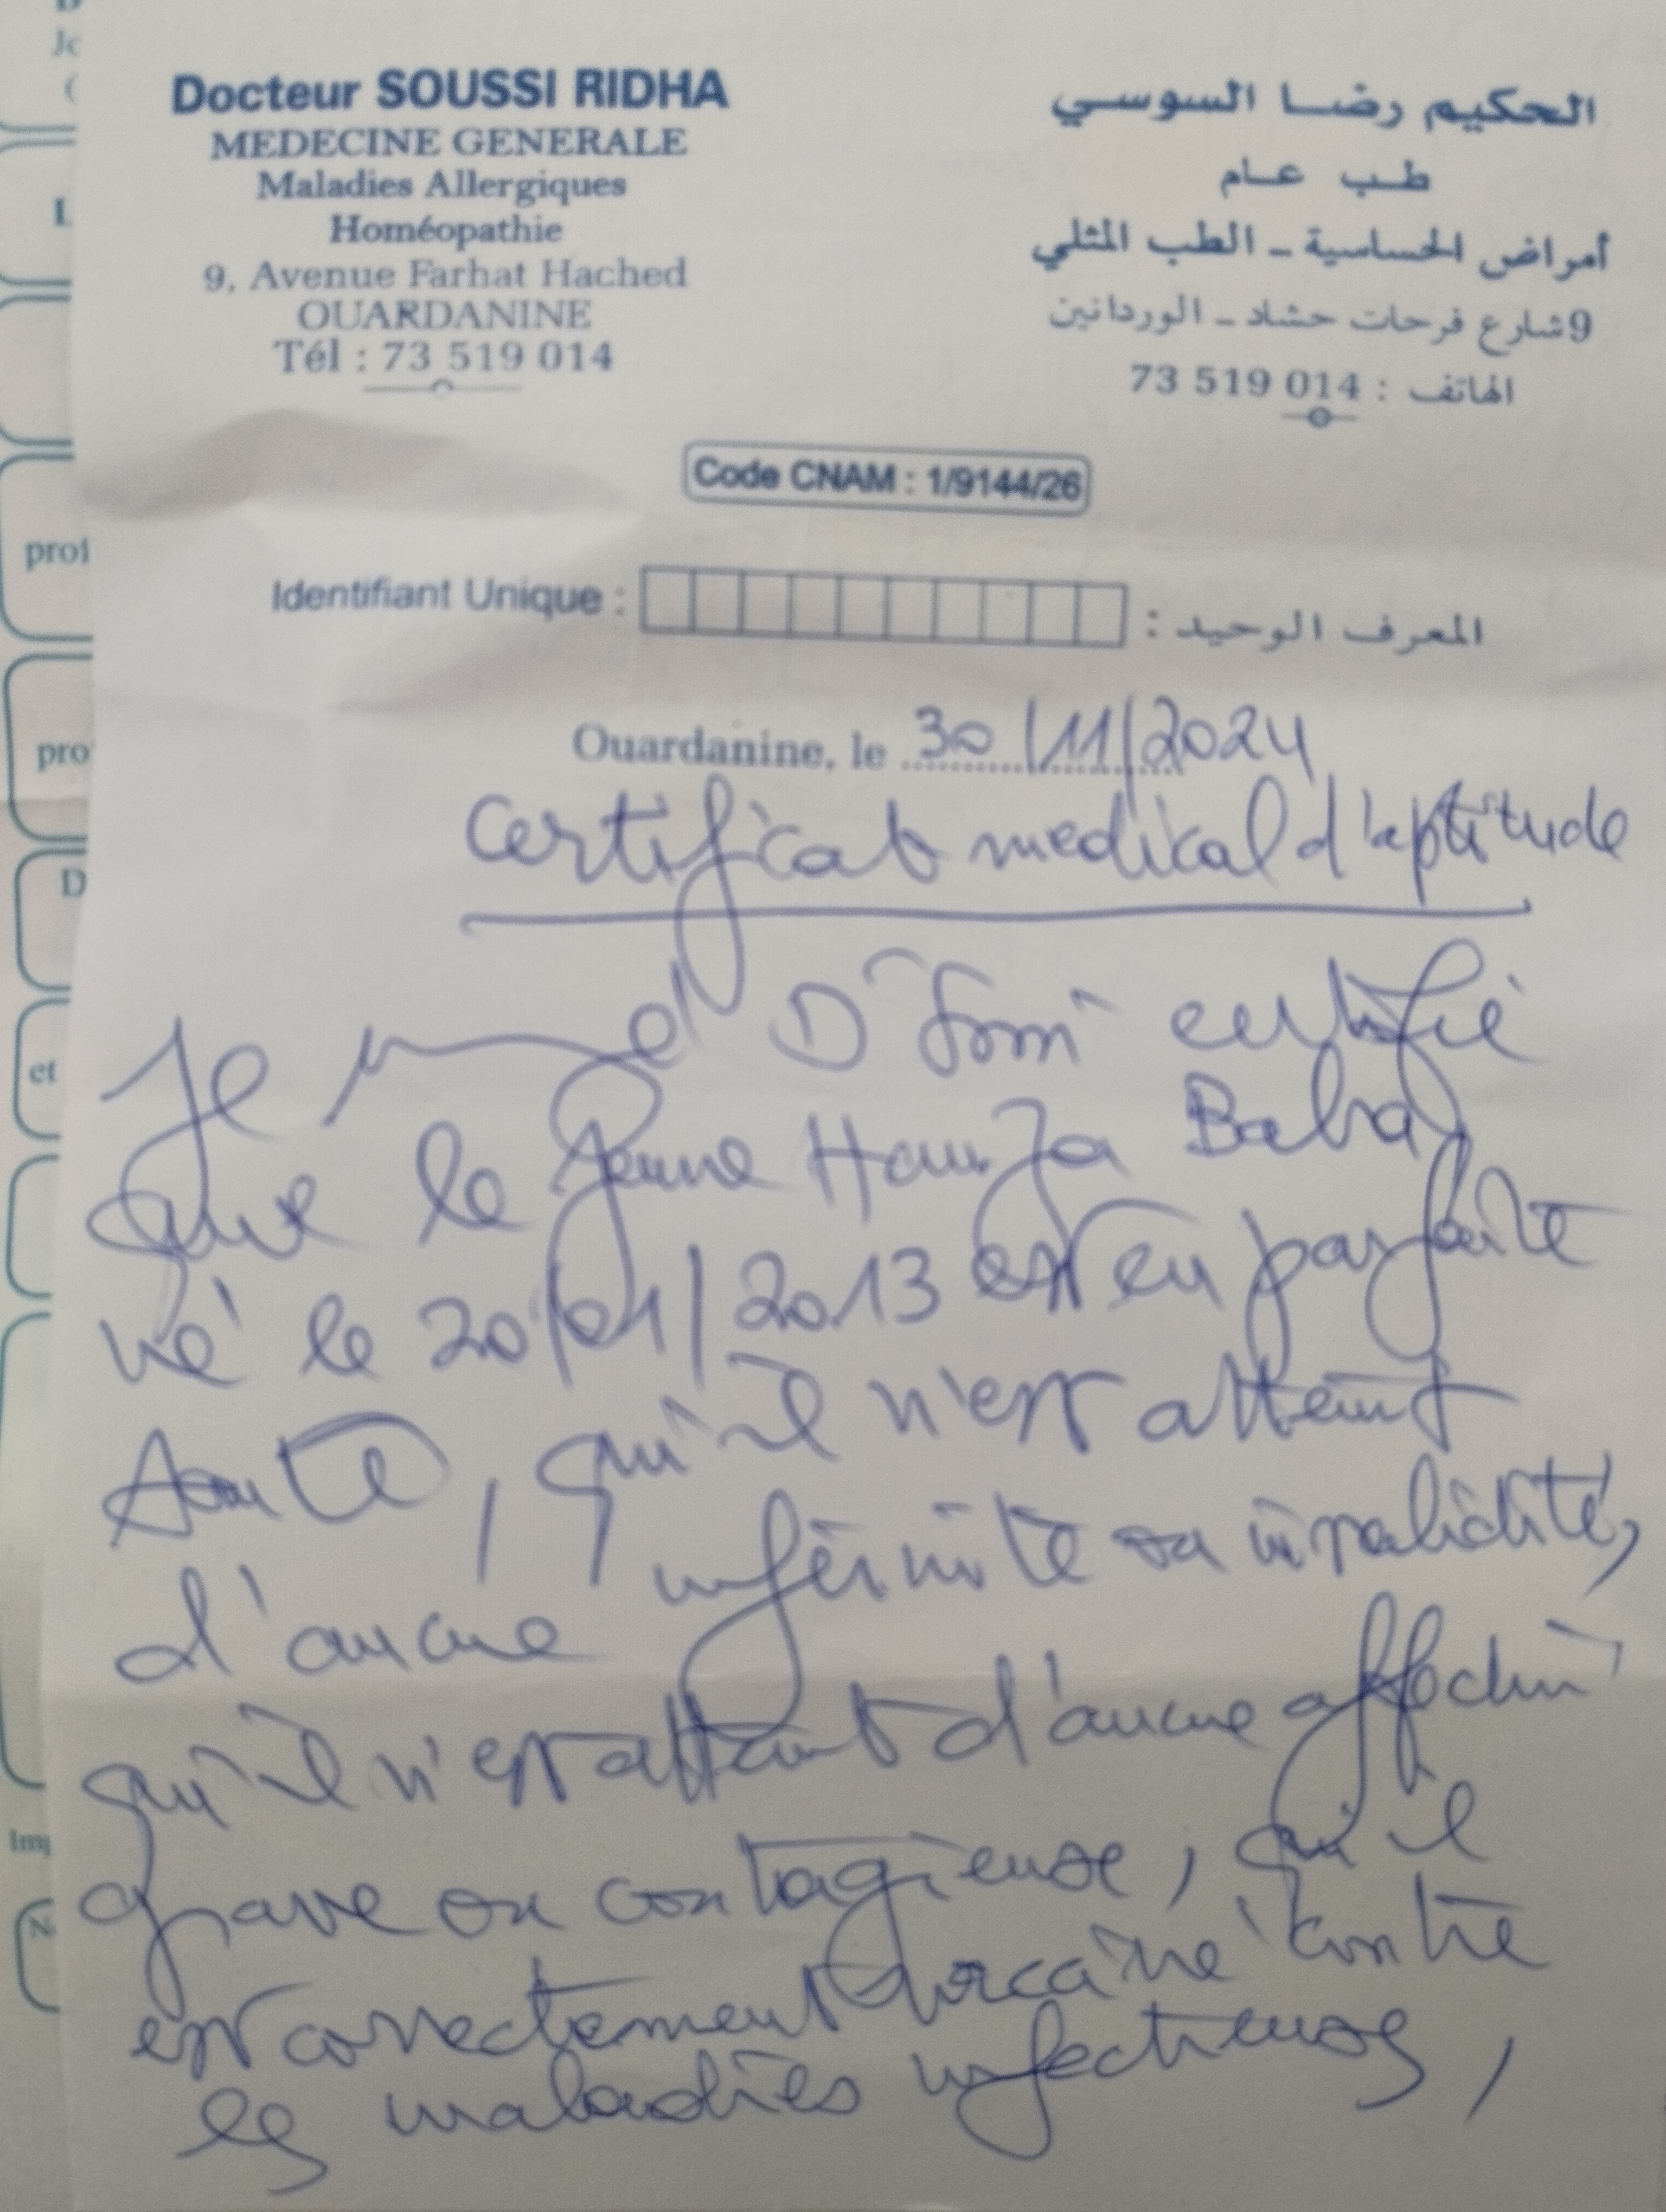 Docteur SOUSSI RIDHA
MEDECINE GENERALE
Maladies Allergiques
Homéopathie
9, Avenue Farhat Hached
OUARDANINE
Tél : 73 519 014
الحكيم رضا السوسي
طب عام
أمراض الحساسية - الطب المثلي
9 شارع فرحات حشاد - الوردانين
الهاتف : 73 519 014
Code CNAM : 1/9144/26
Identifiant Unique : المعرف الوحيد :
Ouardanine, le 30/11/2024
Certificat medical d'aptitude
Je Dr certifie
que le jeune Hamza Baba
né le 20/01/2013 est en parfaite
santé, qu'il n'est atteint
d'aucune infirmité ou invalidité,
qu'il n'est atteint d'aucune affection
grave ou contagieuse, qu'il
est correctement vacciné contre
les maladies infectieuses,
prof
et